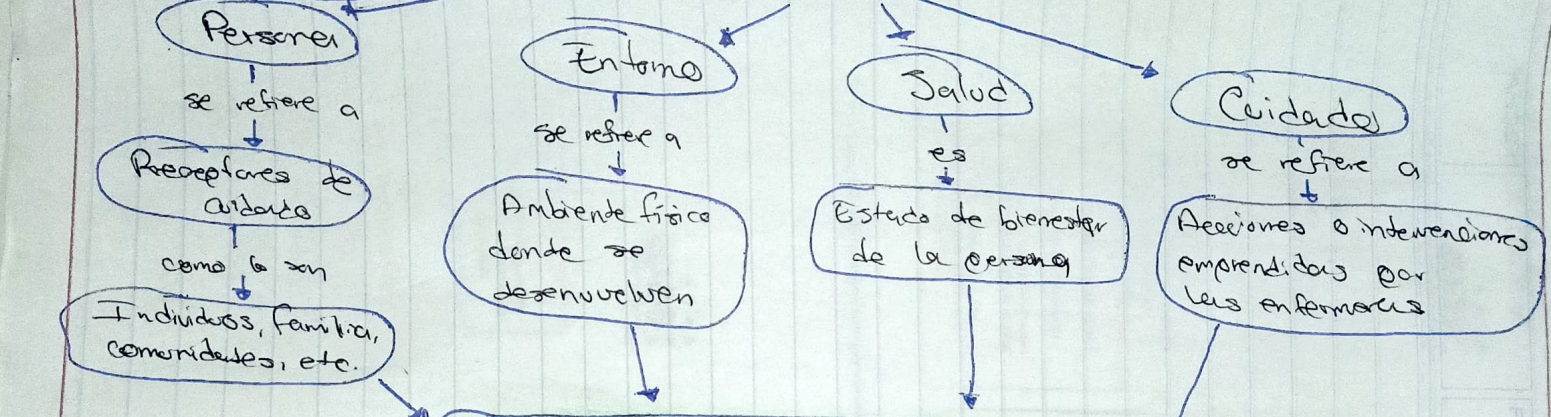 Persona
se refiere a
Receptores de
cuidado
como lo son
Individuos, familia,
comunidades, etc.
Entorno
se refiere a
Ambiente físico
donde se
desenvuelven
Salud
es
Estado de bienestar
de la persona
Cuidado
se refiere a
Acciones o intervenciones
emprendidas por
las enfermeras